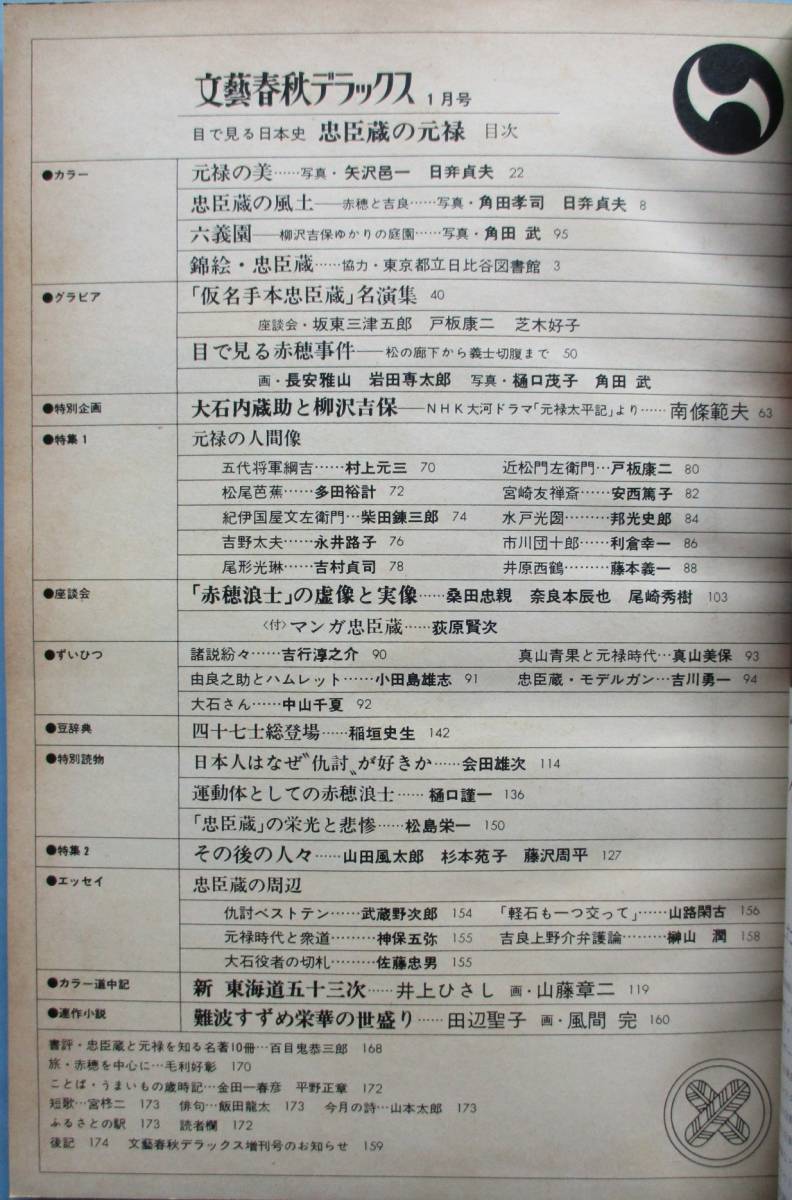 文藝春秋デラックス 1月号
目で見る日本史 忠臣蔵の元禄 目次
●カラー
元禄の美……写真・矢沢邑一 日弉貞夫 22
忠臣蔵の風土――赤穂と吉良……写真・角田孝司 日弉貞夫 8
六義園――柳沢吉保ゆかりの庭園……写真・角田 武 95
錦絵・忠臣蔵……協力・東京都立日比谷図書館 3
●グラビア
「仮名手本忠臣蔵」名演集 40
座談会・坂東三津五郎 戸板康二 芝木好子
目で見る赤穂事件――松の廊下から義士切腹まで 50
画・長安雅山 岩田専太郎 写真・樋口茂子 角田 武
●特別企画
大石内蔵助と柳沢吉保――NHK大河ドラマ「元禄太平記」より……南條範夫 63
●特集1
元禄の人間像
五代将軍綱吉……村上元三 70
近松門左衛門…戸板康二 80
松尾芭蕉……多田裕計 72
宮崎友禅斎……安西篤子 82
紀伊国屋文左衛門…柴田錬三郎 74
水戸光圀………邦光史郎 84
吉野太夫……永井路子 76
市川団十郎……利倉幸一 86
尾形光琳……吉村貞司 78
井原西鶴………藤本義一 88
●座談会
「赤穂浪士」の虚像と実像……桑田忠親 奈良本辰也 尾崎秀樹 103
〈付〉マンガ忠臣蔵……荻原賢次
●ずいひつ
諸説紛々……吉行淳之介 90
真山青果と元禄時代…真山美保 93
由良之助とハムレット……小田島雄志 91
忠臣蔵・モデルガン…吉川勇一 94
大石さん……中山千夏 92
●豆辞典
四十七士総登場……稲垣史生 142
●特別読物
日本人はなぜ〝仇討〟が好きか……会田雄次 114
運動体としての赤穂浪士……樋口謹一 136
「忠臣蔵」の栄光と悲惨……松島栄一 150
●特集2
その後の人々……山田風太郎 杉本苑子 藤沢周平 127
●エッセイ
忠臣蔵の周辺
仇討ベストテン……武蔵野次郎 154
「軽石も一つ交って」……山路閑古 156
元禄時代と衆道……神保五弥 155
吉良上野介弁護論………榊山 潤 158
大石役者の切札……佐藤忠男 155
●カラー道中記
新 東海道五十三次……井上ひさし 画・山藤章二 119
●連作小説
難波すずめ栄華の世盛り……田辺聖子 画・風間 完 160
書評・忠臣蔵と元禄を知る名著10冊…百目鬼恭三郎 168
旅・赤穂を中心に…毛利好彰 170
ことば・うまいもの歳時記…金田一春彦 平野正章 172
短歌…宮柊二 173 俳句…飯田龍太 173 今月の詩…山本太郎 173
ふるさとの駅 173 読者欄 172
後記 174 文藝春秋デラックス増刊号のお知らせ 159